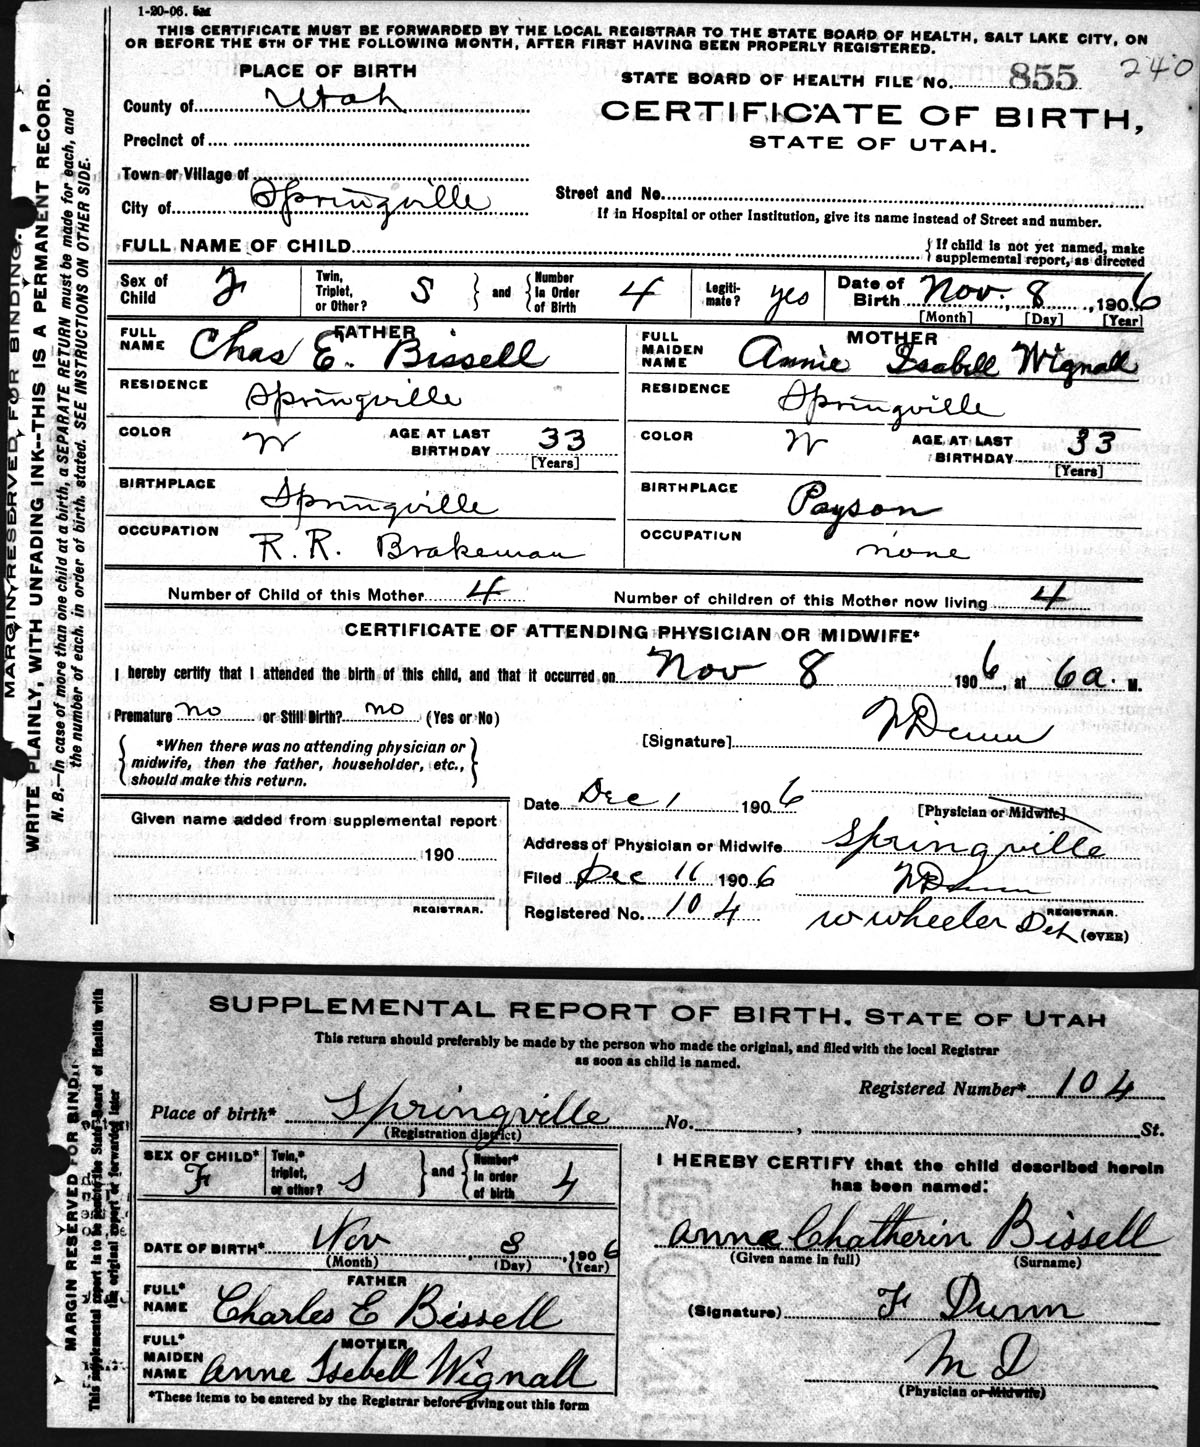 1-20-06. 5M
THIS CERTIFICATE MUST BE FORWARDED BY THE LOCAL REGISTRAR TO THE STATE BOARD OF HEALTH, SALT LAKE CITY, ON
OR BEFORE THE 5TH OF THE FOLLOWING MONTH, AFTER FIRST HAVING BEEN PROPERLY REGISTERED.
PLACE OF BIRTH
STATE BOARD OF HEALTH FILE No. 855 240
County of Utah
CERTIFICATE OF BIRTH,
Precinct of
STATE OF UTAH.
Town or Village of
City of Springville
Street and No.
If in Hospital or other Institution, give its name instead of Street and number.
FULL NAME OF CHILD
{If child is not yet named, make
supplemental report, as directed
Sex of Child F Twin, Triplet, or Other? S } and { Number in Order of Birth 4 Legiti-mate? yes Date of Birth Nov. 8, 1906
[Month] [Day] [Year]
FATHER MOTHER
FULL NAME Chas E. Bissell FULL MAIDEN NAME Annie Isabell Wignall
RESIDENCE Springville RESIDENCE Springville
COLOR W AGE AT LAST BIRTHDAY 33 [Years] COLOR W AGE AT LAST BIRTHDAY 33 [Years]
BIRTHPLACE Springville BIRTHPLACE Payson
OCCUPATION R. R. Brakeman OCCUPATION none
Number of Child of this Mother 4 Number of children of this Mother now living 4
CERTIFICATE OF ATTENDING PHYSICIAN OR MIDWIFE*
I hereby certify that I attended the birth of this child, and that it occurred on Nov 8 1906, at 6 a. M.
Premature no or Still Birth? no (Yes or No)
[Signature] F Dunn
{ *When there was no attending physician or
midwife, then the father, householder, etc.,
should make this return. }
Date Dec 1 1906
[Physician or Midwife]
Given name added from supplemental report
Address of Physician or Midwife Springville
190
Filed Dec 11 1906 F Dunn
REGISTRAR.
REGISTRAR.
Registered No. 104 W Wheeler Dep
(OVER)
MARGIN RESERVED FOR BINDING.
WRITE PLAINLY, WITH UNFADING INK--THIS IS A PERMANENT RECORD.
N. B.—In case of more than one child at a birth, a SEPARATE RETURN must be made for each, and
the number of each, in order of birth, stated. SEE INSTRUCTIONS ON OTHER SIDE.
SUPPLEMENTAL REPORT OF BIRTH, STATE OF UTAH
This return should preferably be made by the person who made the original, and filed with the local Registrar
as soon as child is named.
Registered Number* 104
Place of birth* Springville No. , St.
(Registration district)
SEX OF CHILD* F Twin,* triplet, or other? S } and { Number* in order of birth 4
I HEREBY CERTIFY that the child described herein
has been named:
DATE OF BIRTH* Nov 8, 1906
(Month) (Day) (Year)
Anne Chatherin Bissell
(Given name in full) (Surname)
FATHER
FULL* NAME Charles E Bissell
(Signature) F Dunn
MOTHER
FULL* MAIDEN NAME Anne Isebell Wignall
M D
(Physician or Midwife)
*These items to be entered by the Registrar before giving out this form
MARGIN RESERVED FOR BINDI
This supplemental report to be sent to the State Board of Health with
the original report or forwarded later